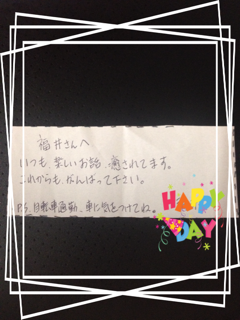 福井さんへ
いつも、楽しいお話、癒されてます。
これからも、がんばって下さい。
P.S. 自転車通勤、車に気をつけてね。
HAPPY
DAY